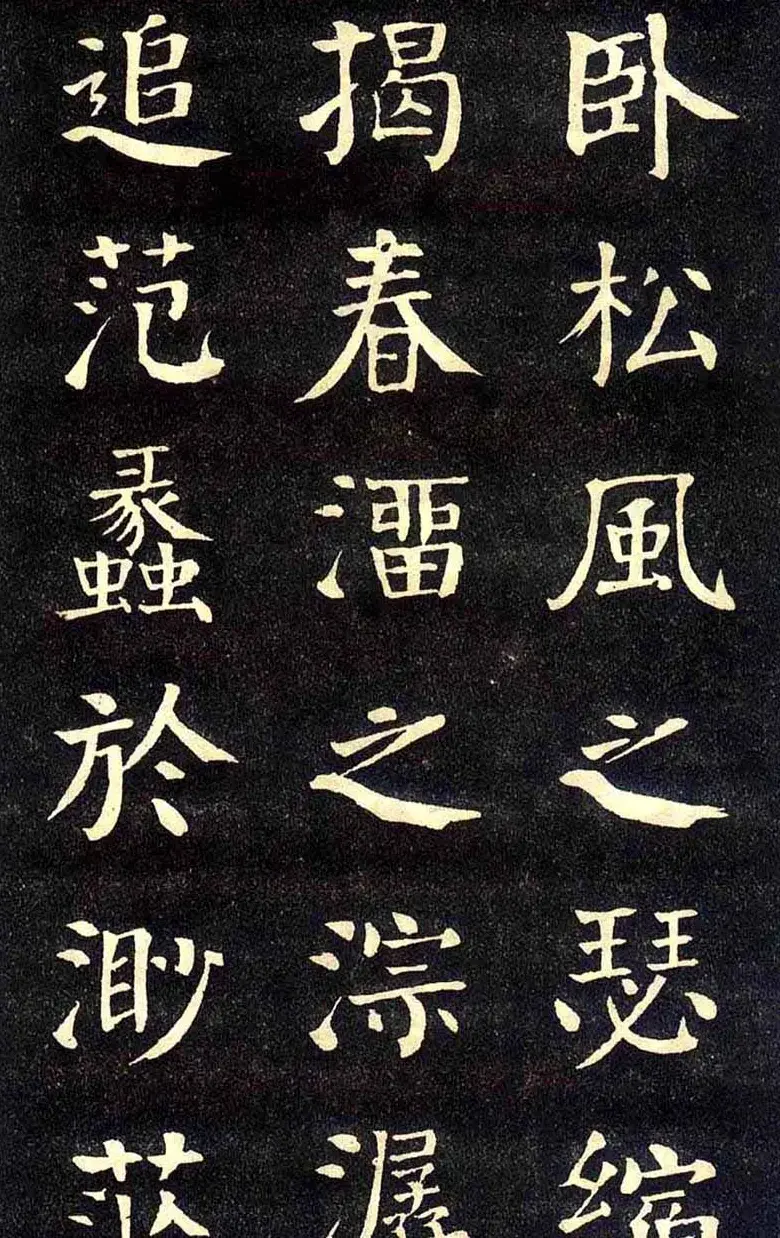 卧松風之瑟縮
揭春澑之淙潺
追范蠡於渺茫